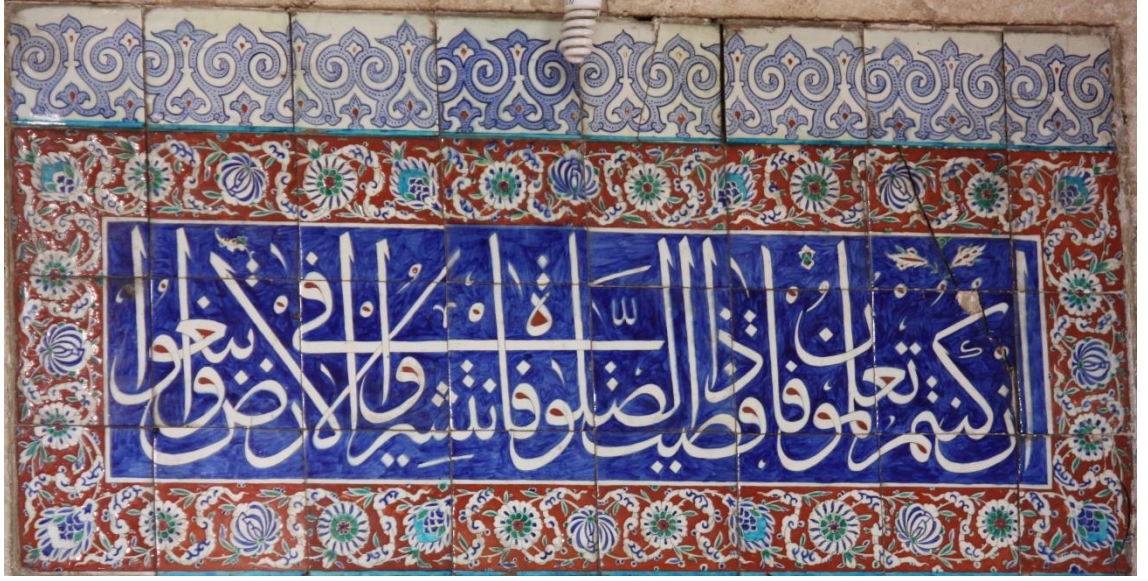 ان كنتم تعلمون فاذا قضيت الصلوة فانتشروا فى الارض وابتغوا